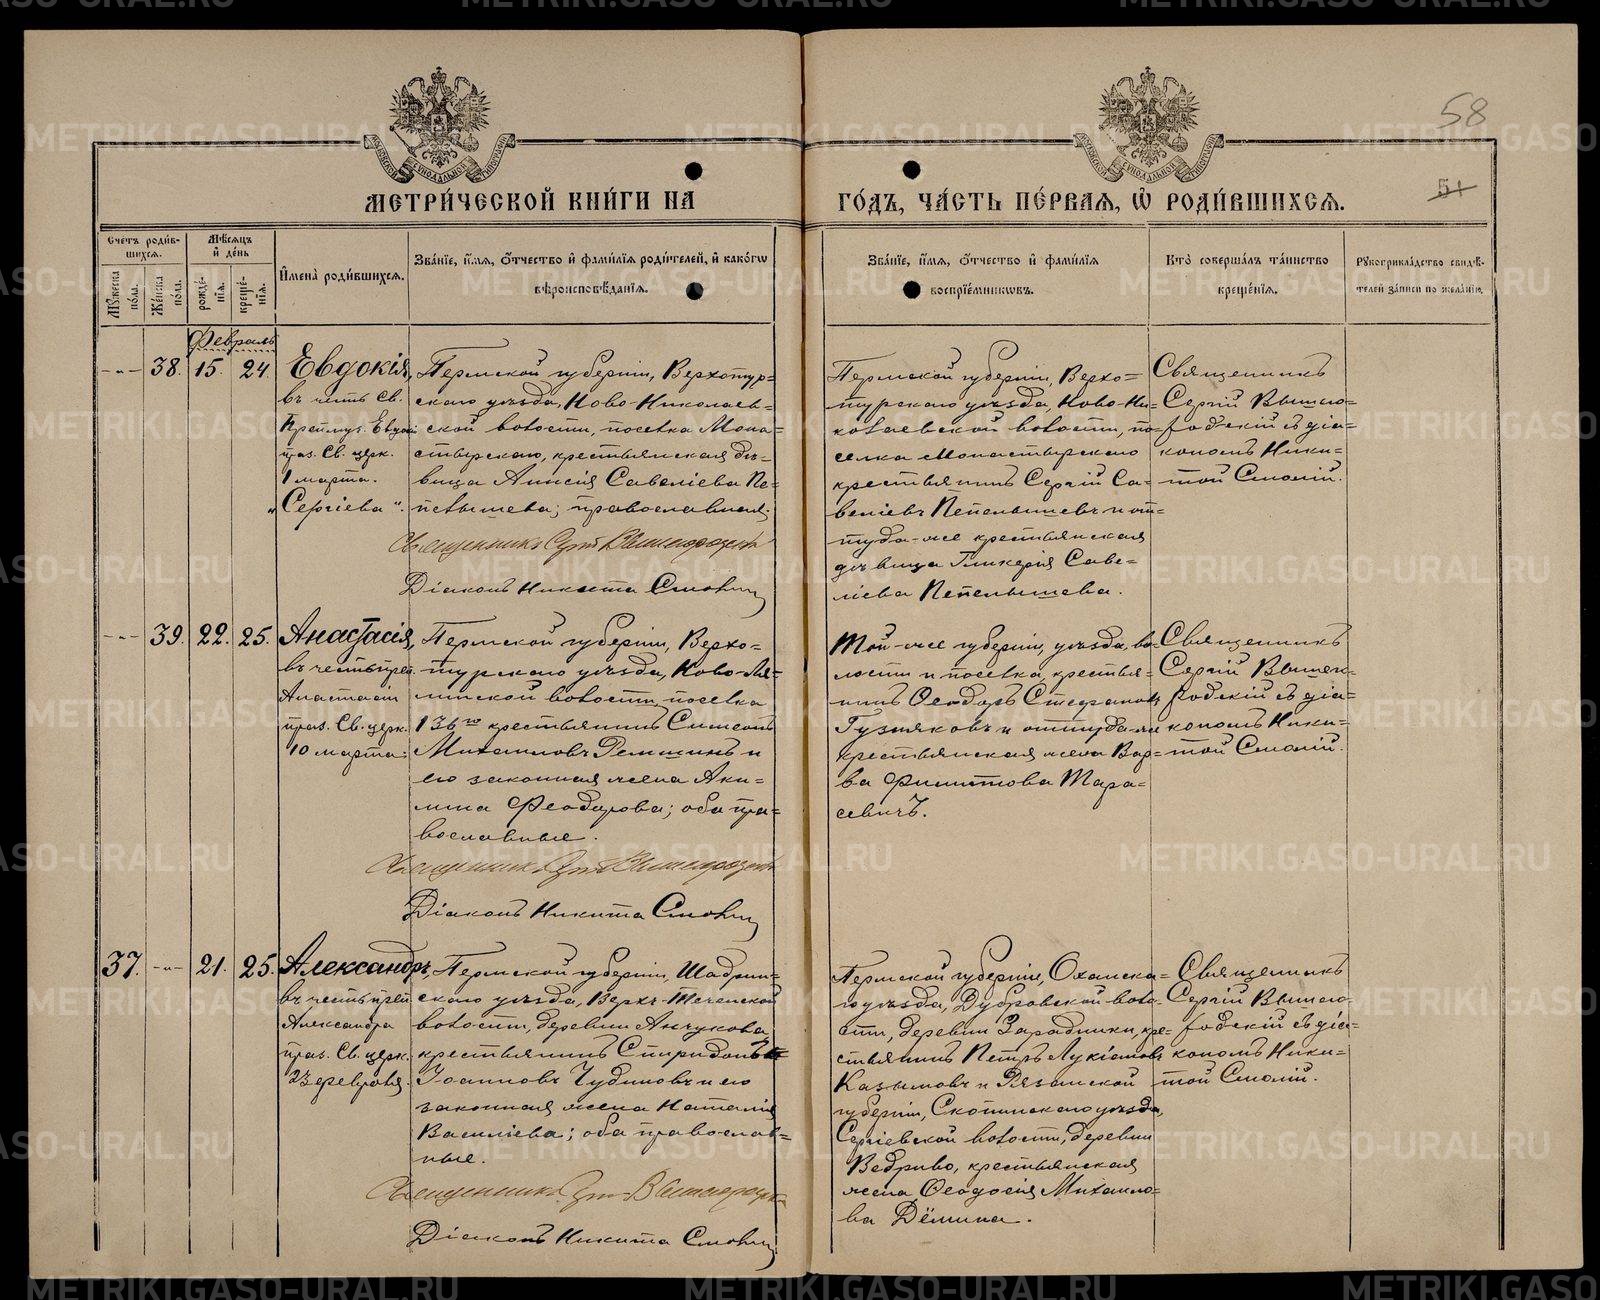 58
51
МЕТРИ́ЧЕСКОЙ КНИ́ГИ НА
ГО́ДЪ, ЧА́СТЬ ПЕ́РВАѦ, Ѡ҆ РОДИ́ВШИХСѦ.
Счетъ роди́в-
шихсѧ.
Мꙋ́жеска по́ла.
Же́нска по́ла.
Мѣ́сѧцъ и҆ де́нь
рожде́-
нїѧ.
креще́-
нїѧ.
И҆мена̀ роди́вшихсѧ.
Зва́нїе, и҆́мѧ, ѻ҆́тчество и҆ фами́лїѧ роди́телей, и҆ како́гѡ
вѣроисповѣ́данїѧ.
Зва́нїе, и҆́мѧ, ѻ҆́тчество и҆ фами́лїѧ
воспрїе́мникѡвъ.
Кто̀ соверша́лъ та́инство
креще́нїѧ.
Рꙋкоприкла́дство свидѣ́-
телей за́писи по жела́нїю.
Февраль
-"- 38. 15. 24.
Евдокія,
въ честь св.
Препмуч. Евдокіи
праз. св. церк.
1 марта.
"Сергіева".
Пермской губерніи, Верхотур-
скаго уѣзда, Ново-Николаев-
ской волости, поселка Мона-
стырскаго, крестьянская дѣ-
вица Анисія Савеліева Пе-
пелышева; православная.
Священникъ Сергій Вышегородскій
Діаконъ Никита Смолій
Пермской губерніи, Верхо-
турскаго уѣзда, Ново-Ни-
колаевской волости, по-
селка Монастырскаго
крестьянинъ Сергій Са-
веліевъ Пепелышевъ и от-
туда-же крестьянская
дѣвица Гликерія Саве-
ліева Пепелышева.
Священникъ
Сергій Вышего-
родскій съ діа-
кономъ Ники-
той Смолій.
-"- 39. 22. 25.
Анастасія,
въ честь преп.
Анастасіи
праз. св. церк.
10 марта.
Пермской губерніи, Верхо-
турскаго уѣзда, Ново-Ля-
линской волости поселка
136го крестьянинъ Симеонъ
Михаиловъ Ремшинъ и
его законная жена Аки-
лина Феодорова; оба пра-
вославные.
Священникъ Сергій Вышегородскій
Діаконъ Никита Смолій
Той-же губерніи, уѣзда, во-
лости и поселка, крестья-
нинъ Ѳеодоръ Стефановъ
Гузняковъ и оттуда-же
крестьянская жена Вар-
ва Филиппова Тара-
севичъ.
Священникъ
Сергій Вышего-
родскій съ діа-
кономъ Ники-
той Смолій.
37. -"- 21. 25.
Александръ,
въ честь преп
Александра
праз. св. церк.
23 февраля.
Пермской губерніи, Шадрин-
скаго уѣзда, Верхъ-Теченской
волости, деревни Анчукова
крестьянинъ Спиридонъ
Іоанновъ Чудиновъ и его
законная жена Наталія
Василіева; оба православ-
ные.
Священникъ Сергій Вышегородскій
Діаконъ Никита Смолій
Пермской губерніи, Оханска-
го уѣзда, Дубровской воло-
сти, деревни Зарадники, кре-
стьянинъ Петръ Лукіановъ
Казымовъ и Рязанской
губерніи, Скопинскаго уѣзда,
Сергіевской волости, деревни
Ведрыво, крестьянская
жена Ѳеодосія Михаило-
ва Дёмина.
Священникъ
Сергій Вышего-
родскій съ діа-
кономъ Ники-
той Смолій.
METRIKI.GASO-URAL.RU